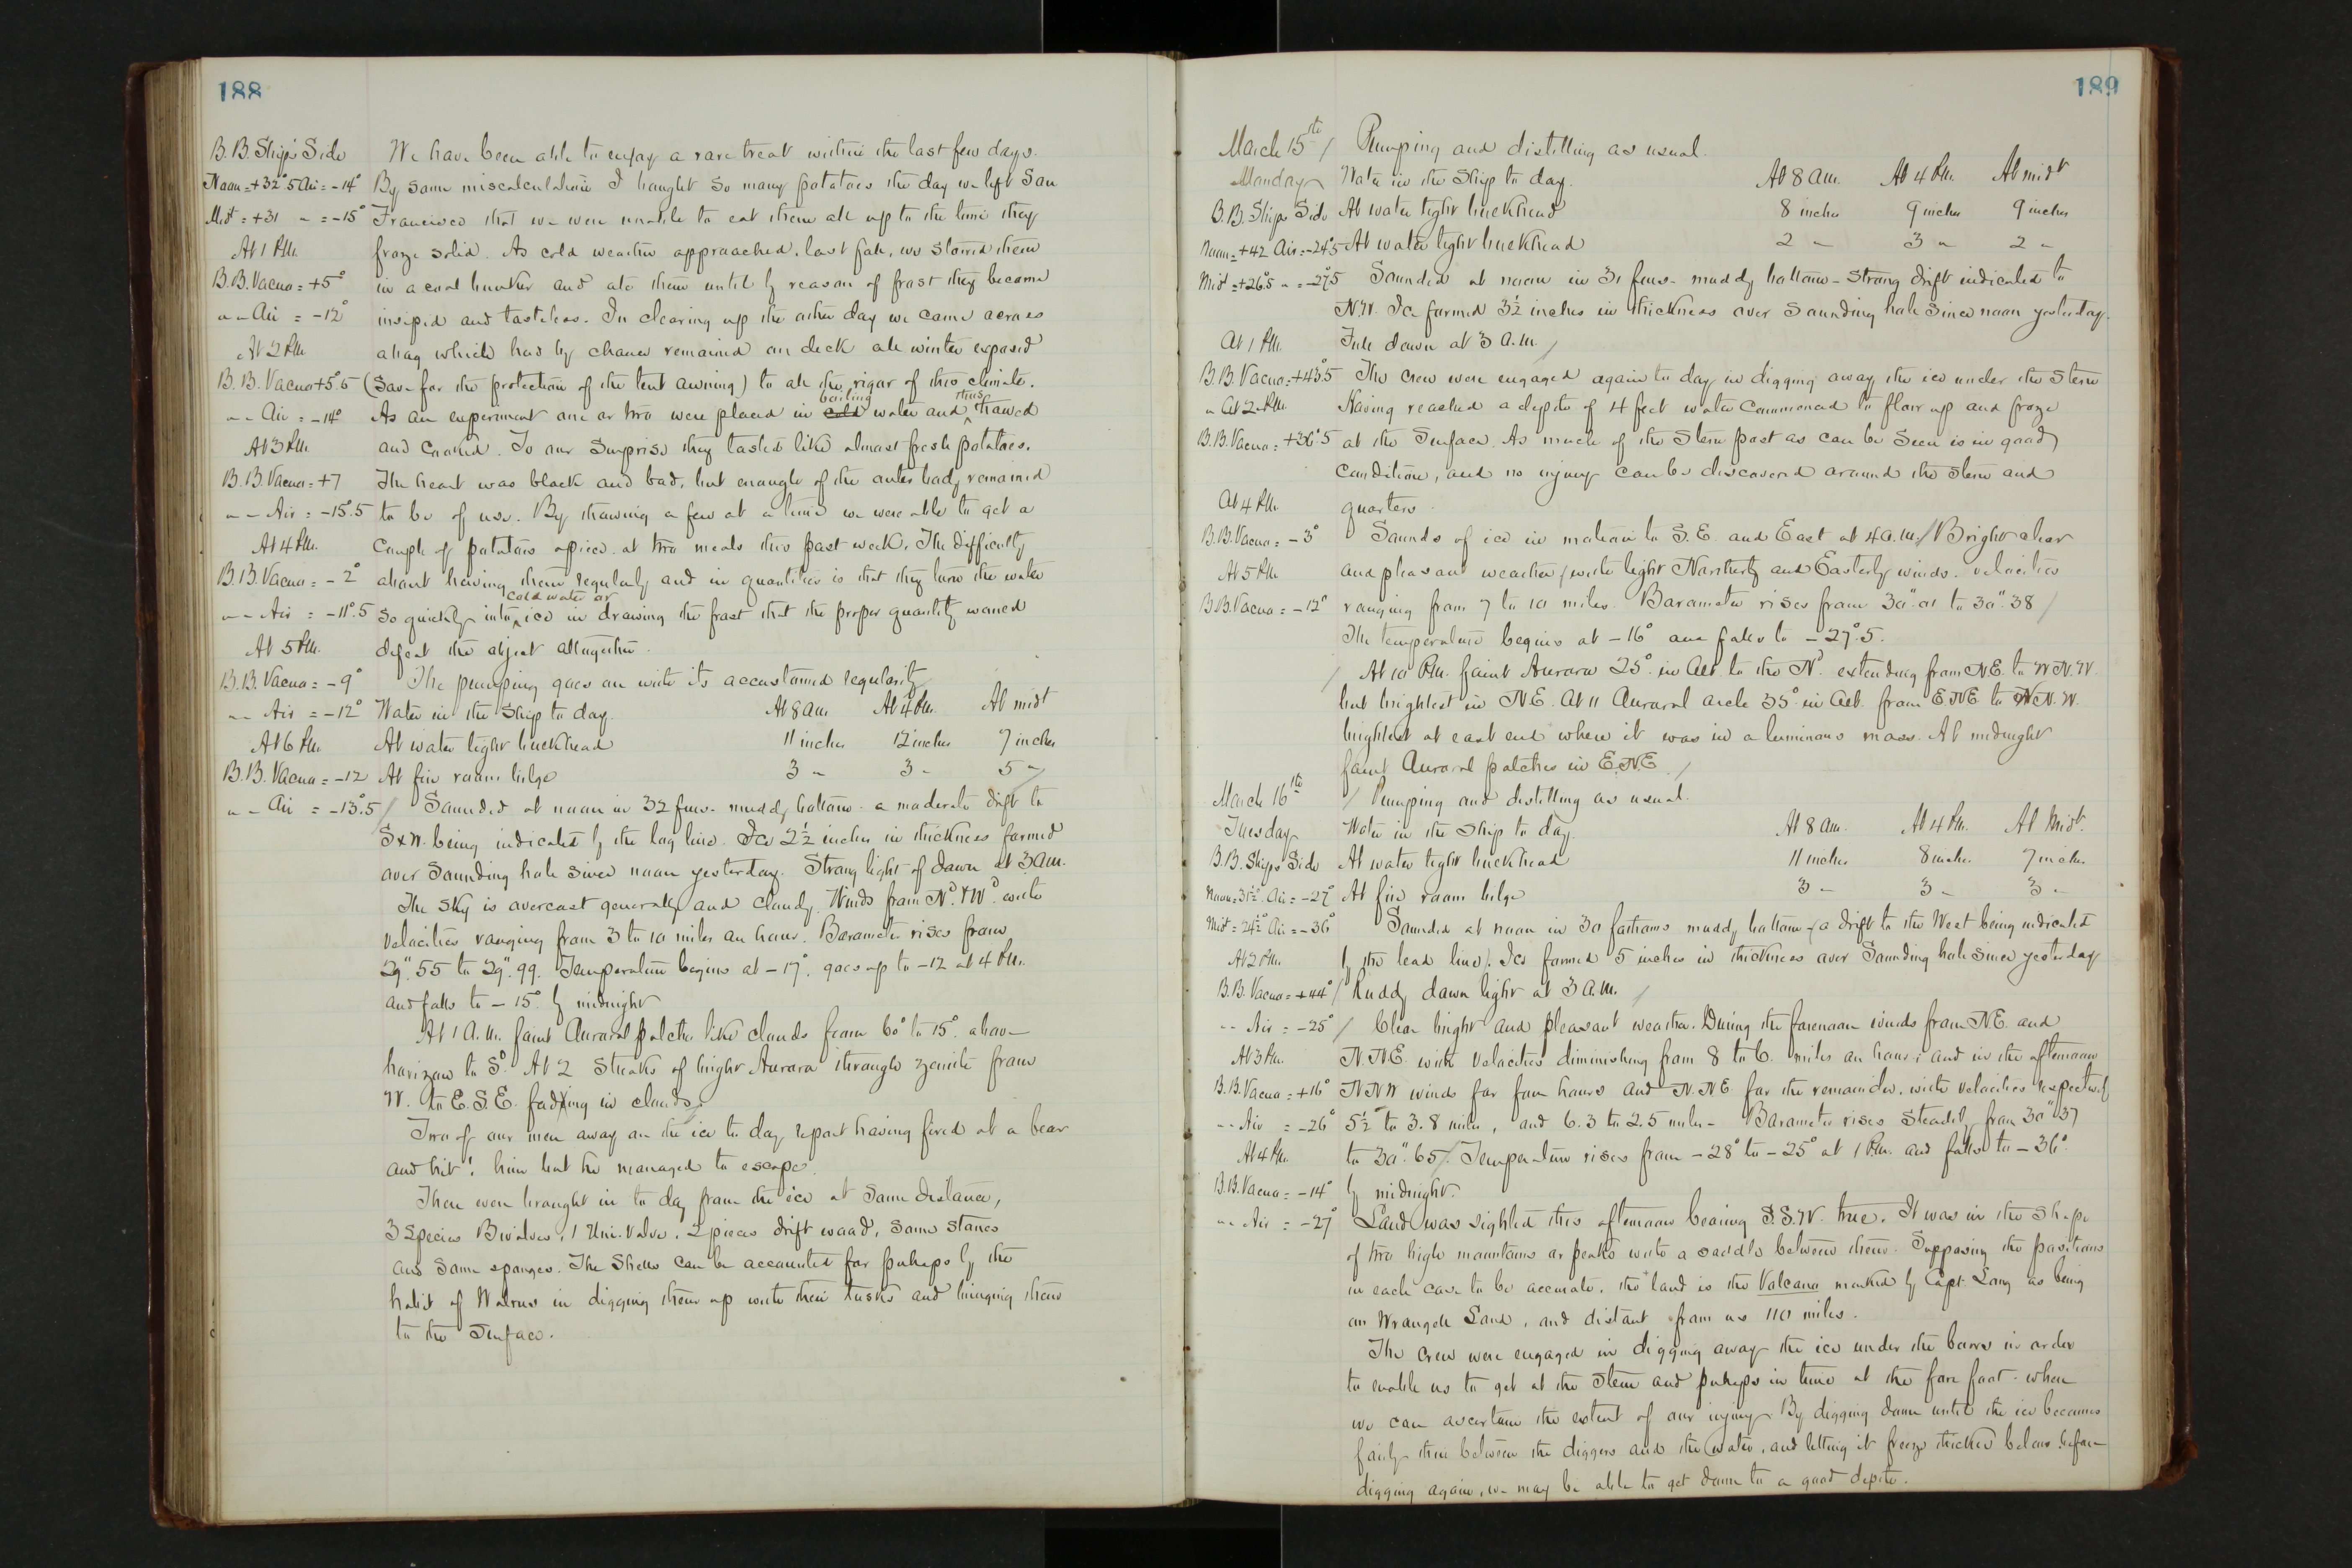 188
B.B. Ship's Side
Noon = +32°.5 Air = -14°
Mid't = +31 " = -15°
At 1 P.M.
B.B. Vacuo = +5°
" " Air = -12°
At 2 P.M.
B.B. Vacuo +5°.5
" " Air = -14°
At 3 P.M.
B.B. Vacuo = +7
" " Air = -15°.5
At 4 P.M.
B.B. Vacuo = -2°
" " Air = -11°.5
At 5 P.M.
B.B. Vacuo = -9°
" " Air = -12°
At 6 P.M.
B.B. Vacuo = -12
" " Air = -13°.5
We have been able to enjoy a rare treat within the last few days.
By some miscalculation I bought so many potatoes the day we left San
Francisco that we were unable to eat them all up to the time they
froze solid. As cold weather approached, last fall, we stowed them
in a coal bunker and ate them until by reason of frost they became
insipid and tasteless. In clearing up the other day we came across
a bag which had by chance remained on deck all winter exposed
(save for the protection of the tent awning) to all the rigor of this climate.
As an experiment one or two were placed in cold boiling water and thus thawed
and cooked. To our surprise they tasted like almost fresh potatoes.
The heart was black and bad, but enough of the outer body remained
to be of use. By thawing a few at a time we were able to get a
couple of potatoes apiece at two meals this past week. The difficulty
about having them regularly and in quantities is that they turn the water
so quickly into cold water or ice in drawing the frost that the proper quantity would
defeat the object altogether.
The pumping goes on with its accustomed regularity
Water in the ship to day. At 8 a.m. At 4 P.M. At midt
At water tight bulkhead 11 inches 12 inches 7 inches
At fire room bilge 3 " 3 " 5 "
/ Sounded at noon in 32 fms. muddy bottom - a moderate drift to
SxW. being indicated by the log line. Ice 2½ inches in thickness formed
over sounding hole since noon yesterday. Strong light of dawn at 3 a.m.
The sky is overcast generally and cloudy. Winds from Nd. & Wd. with
velocities ranging from 3 to 10 miles an hour. Barometer rises from
29".55 to 29".99. Temperature begins at -17°, goes up to -12 at 4 P.M.
and falls to -15° by midnight
At 1 A.M. faint Auroral patches like clouds from 60° to 15° above
horizon to Sd. At 2 Streaks of bright Aurora through zenith from
W. to E.S.E. fading in clouds.
Two of our men away on the ice to day report having fired at a bear
and hit! him but he managed to escape.
There were brought in to day from the ice at some distance,
3 Species Bivalves, 1 Uni-valve, 2 pieces drift wood, some stones
and some sponges. The shells can be accounted for perhaps by the
habit of Walrus in digging them up with their tusks and bringing them
to the surface.
189
March 15th /
Monday
B.B. Ships Side
Noon = +42 Air = -24°.5
Mid't = +26°.5 " = -27°.5
At 1 P.M.
B.B. Vacuo = +43°.5
" At 2 P.M.
B.B. Vacuo = +36°.5
At 4 P.M.
B.B. Vacuo = -3°
At 5 P.M.
B.B. Vacuo = -12°
Pumping and distilling as usual.
Water in the ship to day. At 8 a.m. At 4 P.M. At midt
At water tight bulkhead 8 inches 9 inches 9 inches
At water tight bulkhead 2 " 3 " 2 "
Sounded at noon in 31 fms. muddy bottom - strong drift indicated to
N.W. Ice formed 3½ inches in thickness over sounding hole since noon yesterday.
Full dawn at 3 a.m. /
The crew were engaged again to day in digging away the ice under the stern
Having reached a depth of 4 feet water commenced to flow up and froze
at the surface. As much of the stern post as can be seen is in good
condition, and no injury can be discovered around the stern and
quarters.
Sounds of ice in motion to S.E. and East at 4 a.m. / Bright clear
and pleasant weather / with light Northerly and Easterly winds. velocities
ranging from 7 to 10 miles. Barometer rises from 30".01 to 30".38 /
The temperature begins at -16° and falls to -27°.5.
/ At 10 P.M. faint Aurora 25° in alt. to the Nd. extending from N.E. to W.N.W.
but brightest in N.E. At 11 Auroral arch 35° in alt. from E.N.E to N.W.
brightest at east end where it was in a luminous mass. At midnight
faint Auroral patches in E.N.E. /
March 16th
Tuesday
B.B. Ships Side
Noon = 31½° Air = -27
Mid't = 24½° Air = -36°
At 2 P.M.
B.B. Vacuo = +44°
" " Air = -25°
At 3 P.M.
B.B. Vacuo = +16°
" " Air = -26°
At 4 P.M.
B.B. Vacuo = -14°
" " Air = -27°
/ Pumping and distilling as usual.
Water in the ship to day. At 8 am. At 4 P.M. At Midt.
At water tight bulkhead 11 inches 8 inches 7 inches
At fire room bilge 3 " 3 " 3 "
Sounded at noon in 30 fathoms muddy bottom / a drift to the West being indicated
by the lead line /. Ice formed 5 inches in thickness over sounding hole since yesterday
/ Ruddy dawn light at 3 a.m. /
/ Clear bright and pleasant weather. During the forenoon winds from N.E. and
N.N.E. with velocities diminishing from 8 to 6. miles an hour; and in the afternoon
N.N.W winds for four hours and N.N.E. for the remainder, with velocities respectively
5½ to 3.8 miles, and 6.3 to 2.5 miles - Barometer rises steadily from 30".37
to 30".65 /. Temperature rises from -28° to -25° at 1 P.M. and falls to -36°
by midnight.
Land was sighted this afternoon bearing S.S.W. true. It was in the shape
of two high mountains or peaks with a saddle between them. Supposing the positions
in each case to be accurate, the land is the Volcano marked by Capt. Long as being
on Wrangell Land, and distant from us 110 miles.
The crew were engaged in digging away the ice under the bows in order
to enable us to get at the stem and perhaps in time at the fore foot - when
we can ascertain the extent of our injury. By digging down until the ice becomes
fairly thin between the diggers and the water, and letting it freeze thicker below before
digging again, we may be able to get down to a good depth.